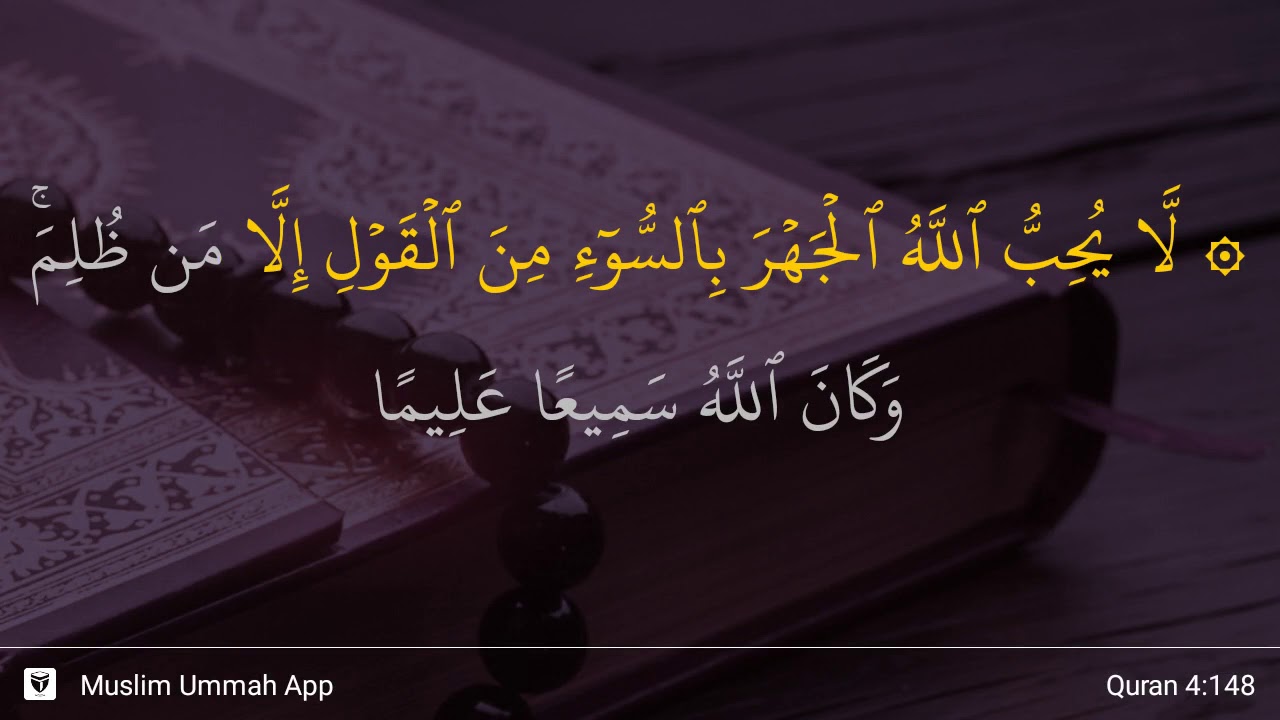 ۞ لَّا يُحِبُّ ٱللَّهُ ٱلْجَهْرَ بِٱلسُّوٓءِ مِنَ ٱلْقَوْلِ إِلَّا مَن ظُلِمَ ۚ
وَكَانَ ٱللَّهُ سَمِيعًا عَلِيمًا
Muslim Ummah App
Quran 4:148